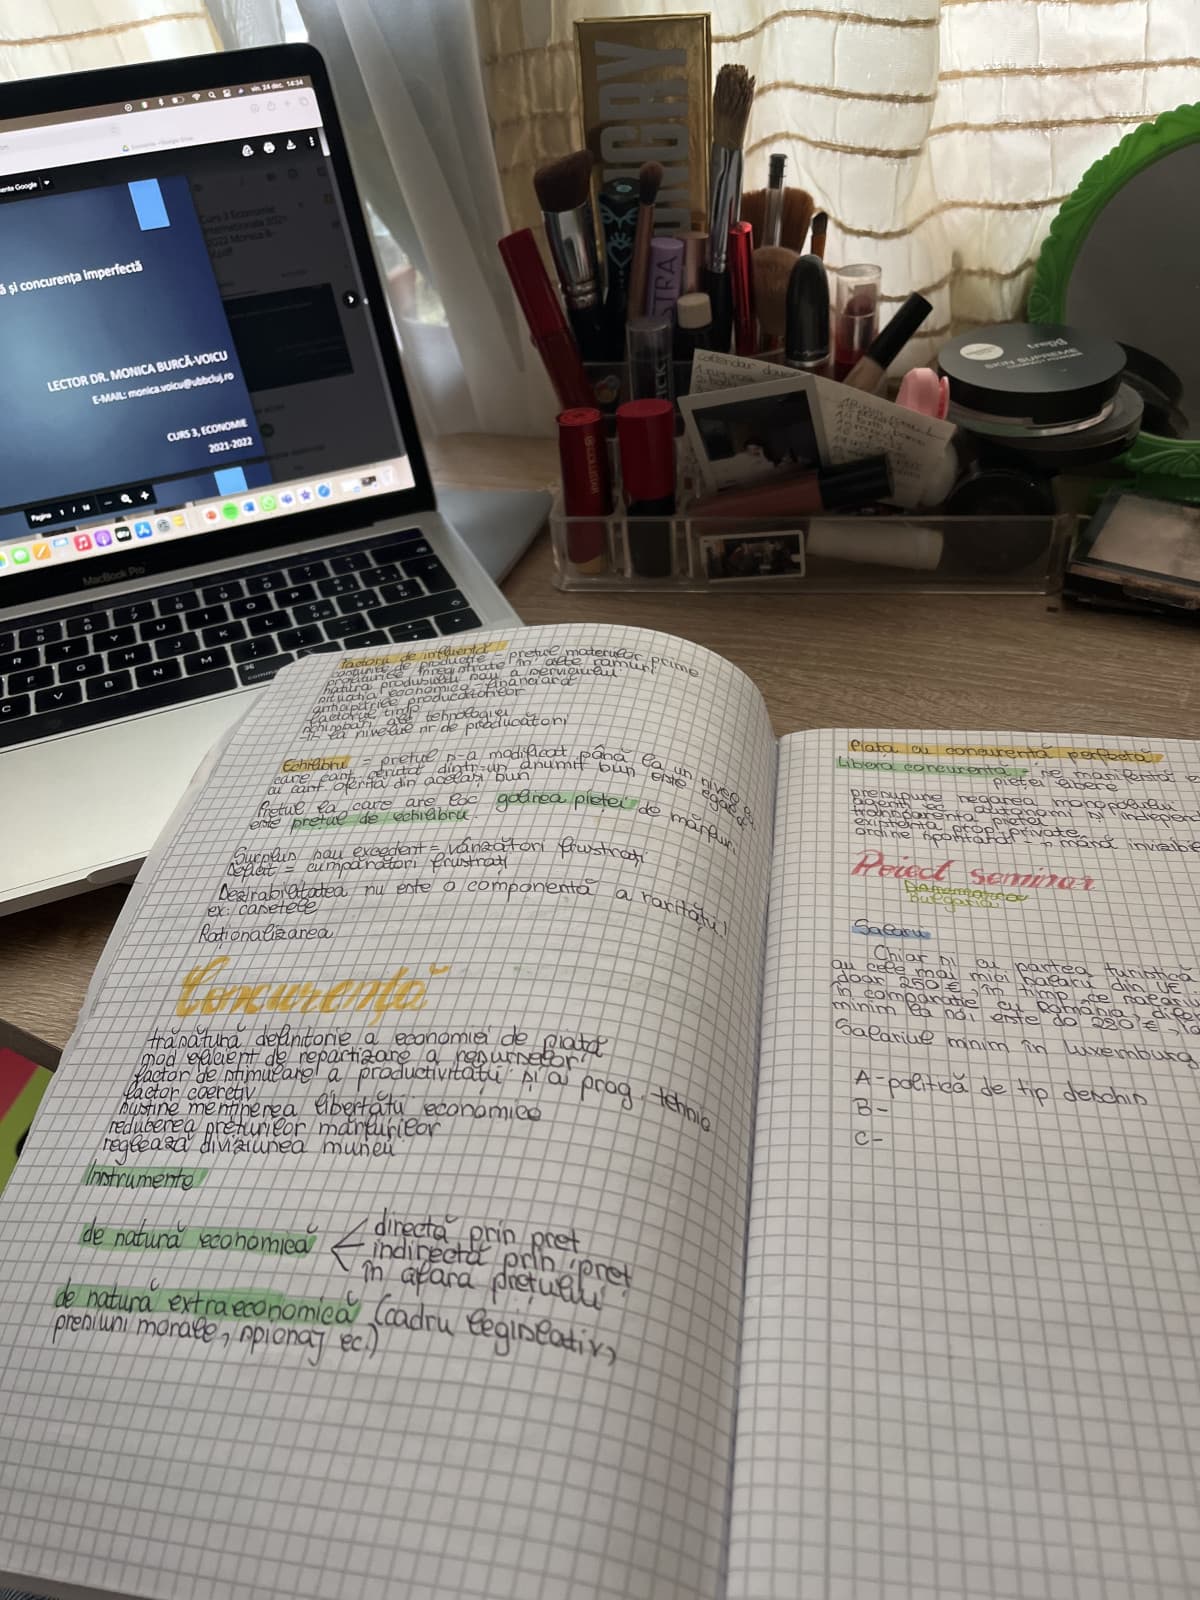 vin. 24 dec. 14:34
ă și concurența imperfectă
LECTOR DR. MONICA BURCĂ-VOICU
E-MAIL: monica.voicu@ubbcluj.ro
CURS 3, ECONOMIE
2021-2022
Curs 3 Economie
2022 Monica B-
Pagina 1 / 14
MacBook Pro
SKIN SUPREME
Factorii de influență
costurile de producție - prețul materiilor prime
produsului sau a serviciului
situația economico-financiară
anticipările producătorilor
factorul timp
schimbări ale tehnologiei
nivelul nr de producători
Echilibru = prețul s-a modificat până la un nivel
care cant. cerută dintr-un anumit bun este egală
cu cant oferită din același bun
Prețul la care are loc golirea pieței de mărfuri,
este prețul de echilibru.
Surplus sau excedent = vânzători frustrați
Deficit = cumpărători frustrați
Dezirabilitatea nu este o componentă a rarității!
ex: casetele
Raționalizarea
Concurență
trăsătură definitorie a economiei de piață
mod eficient de repartizare a resurselor
factor de stimulare a productivității și a prog. tehnic
factor coercitiv
susține menținerea libertății economice
reducerea prețurilor mărfurilor
reglează diviziunea muncii
Instrumente
de natură economică
directă prin preț
indirectă prin preț
în afara prețului
de natură extraeconomică (cadru legislativ,
presiuni morale, spionaj ec.)
Piața cu concurență perfectă
Libera concurență - se manifestă
pieței libere
presupune negarea monopolului
agenți ec autonomi și independ
transparența pieței
existența prop. private
ordine spontană → mâna invizibi
Poiect seminar
Bulgaria
Salarii
Chiar și cu partea turistică
au cele mai mici salarii din UE
doar 250 €, în timp ce salariul
în comparație cu România, difer
minim la noi este de 280 €, ia
Salariul minim în Luxemburg
A-politică de tip deschis
B-
C-